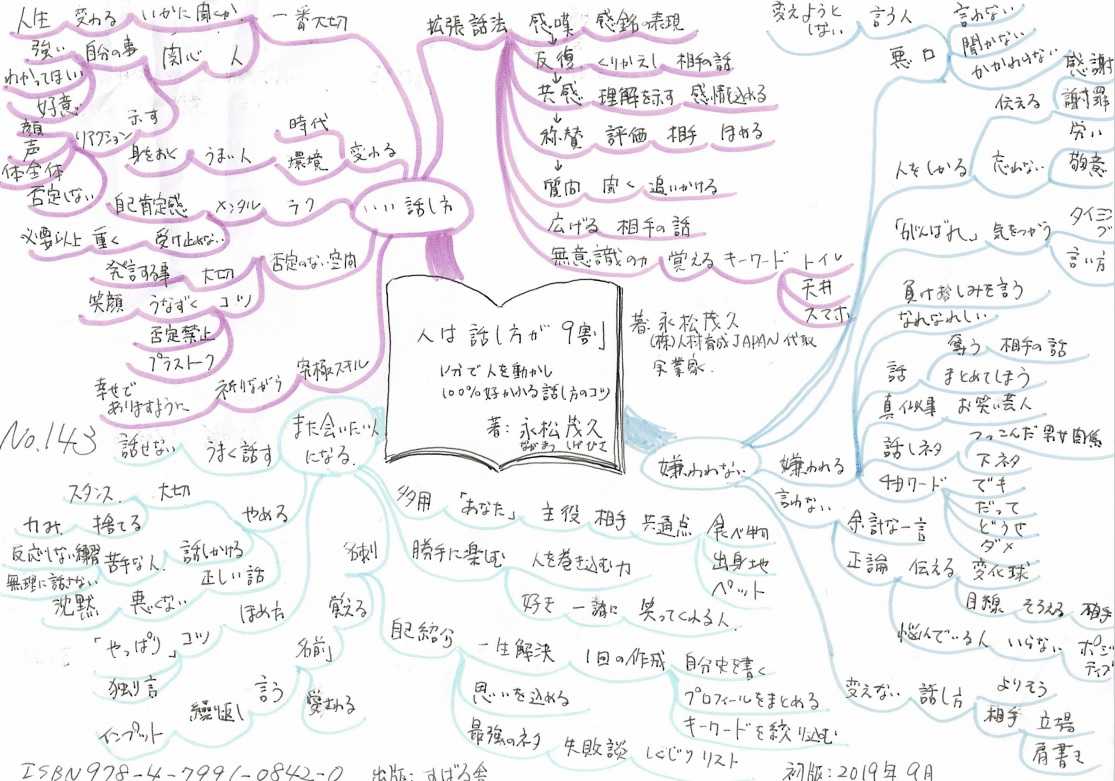 「人は話し方が9割」
1分で人を動かし
100%好かれる話し方のコツ
著:永松茂久
ながまつ しげひさ
著:永松茂久
(株)人材育成JAPAN代取
実業家
No.143
いい話し方
一番大切
いかに聞くか
変わる
人生
人
関心
自分の事
強い
わかってほしい
好意
示す
リアクション
顔
声
体全体
否定しない
変わる
時代
環境
うまい人
身をおく
ラク
メンタル
自己肯定感
受け止めない
重く
必要以上
否定のない空間
大切
発言する事
コツ
うなずく
笑顔
否定禁止
プラストーク
究極スキル
祈りながら
幸せで
ありますように
拡張話法
感嘆 感銘の表現
反復 くりかえし 相手の話
共感 理解を示す 感情を込める
称賛 評価 相手 ほめる
質問 聞く 追いかける
広げる 相手の話
無意識の力 覚える キーワード トイレ
天井
スマホ
嫌われない
嫌われる
悪口
言わない
聞かない
かかわらない
言う人
変えようと
しない
人をしかる
忘れない
伝える
感謝
謝罪
労い
敬意
「がんばれ」 気をつかう
言い方
負け惜しみを言う
なれなれしい
話
奪う 相手の話
まとめてしまう
真似事 お笑い芸人
話しネタ
つっこんだ男女関係
下ネタ
4Dワード
でも
だって
どうせ
ダメ
言わない
余計な一言
正論 伝える 変化球
目線 そろえる 相手
悩んでいる人 いらない ポジ
ティブ
変えない 話し方
よりそう
相手 立場
肩書き
また会いたい人
になる
うまく話す
話せない
やめる
大切
スタンス
捨てる
力み
話しかける
苦手な人
反応しない練習
無理に話さない
正しい話
ほめ方
悪くない
沈黙
コツ
「やっぱり」
独り言
名刺
覚える
「名前」
愛される
言う
繰り返し
インプット
多用 「あなた」 主役 相手 共通点 食べ物
出身地
ペット
勝手に楽しむ 人を巻き込む力
好き 一緒に 笑ってくれる人
自己紹介
一生解決 1回の作成 自分史を書く
プロフィールをまとめる
キーワードを絞り込む
思いを込める
最強のネタ 失敗談 しくじりリスト
ISBN978-4-7991-0842-0 出版:すばる舎 初版:2019年9月